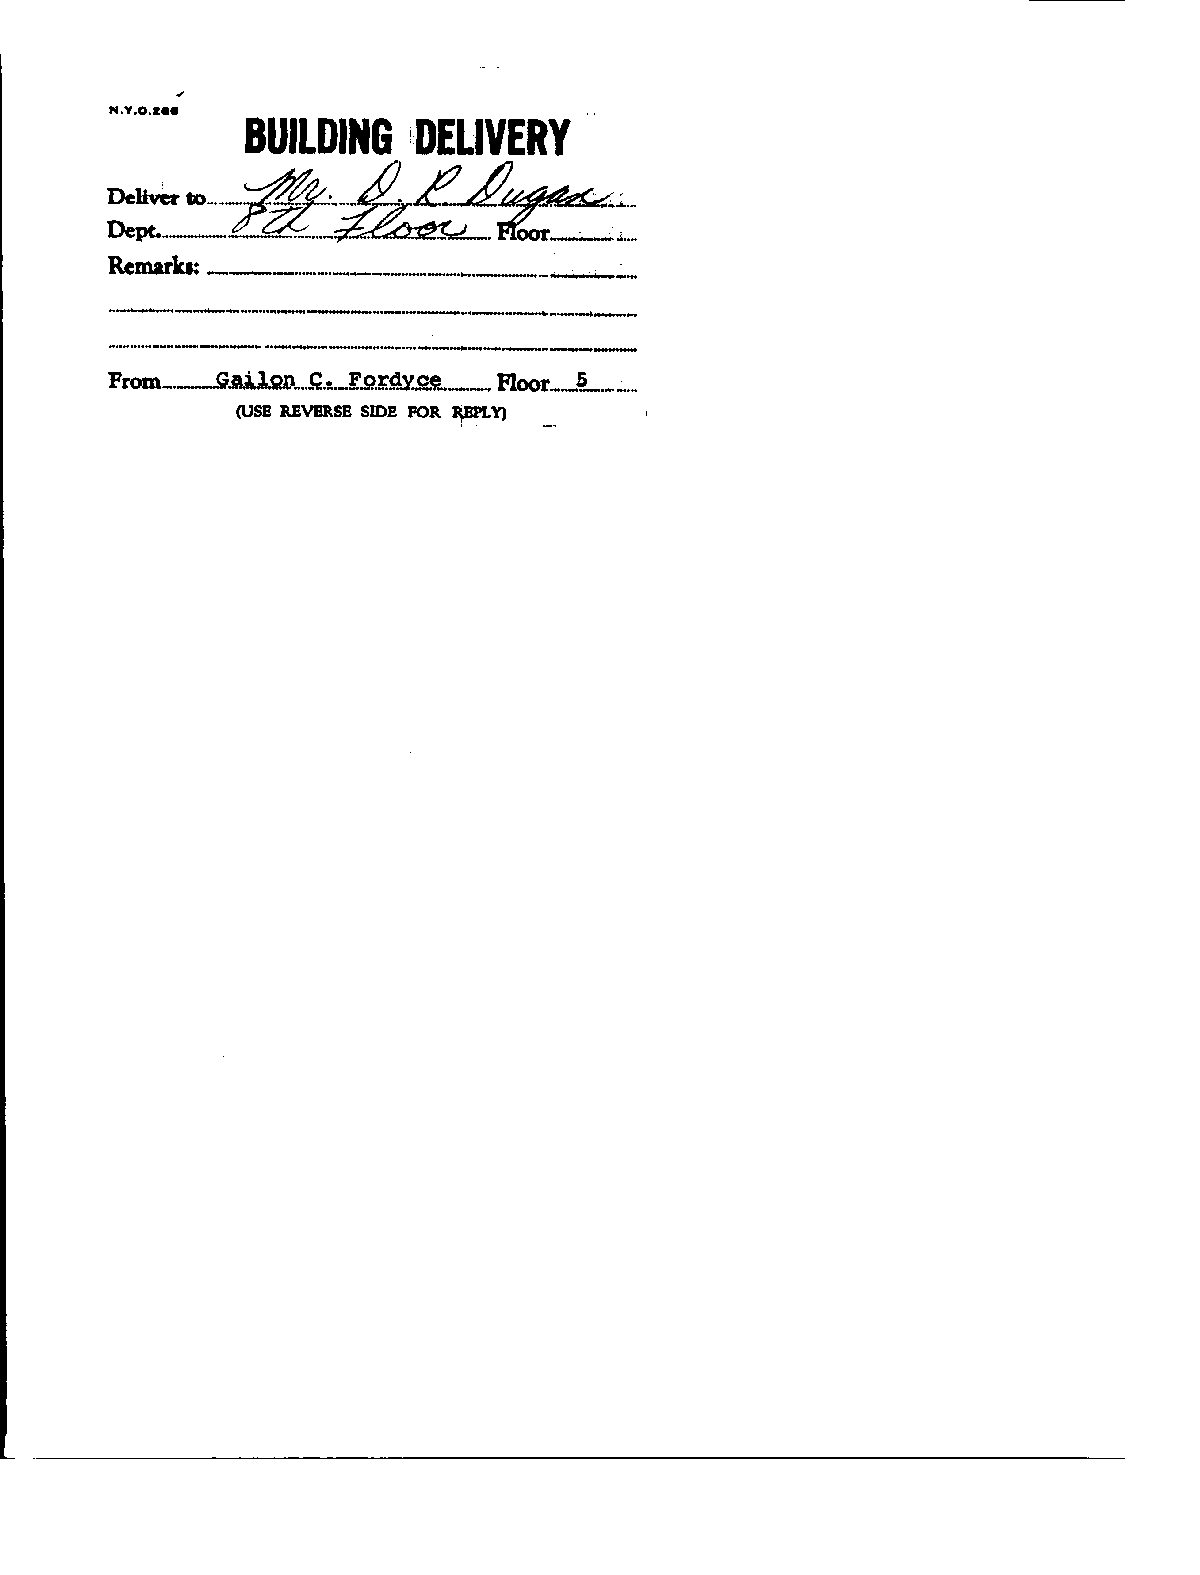 N.Y.O.266
BUILDING DELIVERY
Deliver to Mr. D. R. Dugan
Dept. 8th Floor Floor
Remarks:
From Gailon C. Fordyce Floor 5
(USE REVERSE SIDE FOR REPLY)